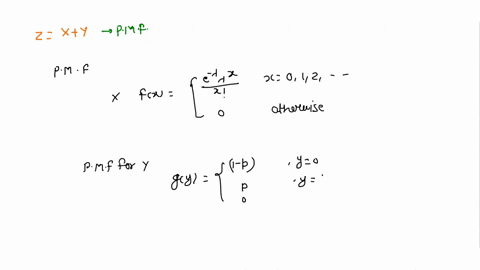 z = x+y → p.m.f.
p.m.f
x f(x) = { e^-λ λ^x / x! x = 0, 1, 2, - -
0 otherwise
p.m.f for y g(y) = { (1-p) , y=0
p , y =
0